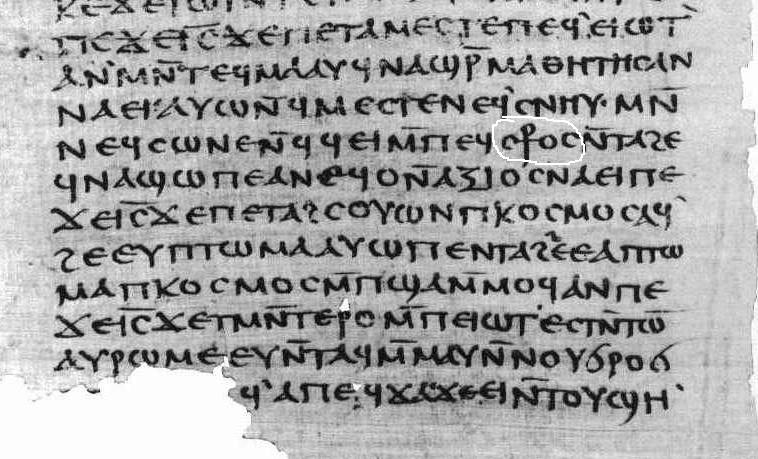 ⲡⲉϫⲉⲓ̅ⲥ̅ϫⲉⲡⲉⲧⲁⲙⲉⲥⲧⲉⲡⲉϥ'ⲉⲓⲱⲧ'
ⲁⲛ'ⲙⲛ̄ⲧⲉϥⲙⲁⲁⲩϥⲛⲁϣⲣ̄ⲙⲁⲑⲏⲧⲏⲥⲁⲛ
ⲛⲁⲉⲓ'ⲁⲩⲱⲛ̄ϥⲙⲉⲥⲧⲉⲛⲉϥ'ⲥⲛⲏⲩ·ⲙⲛ̄
ⲛⲉϥⲥⲱⲛⲉⲛ̄ϥϥⲉⲓⲙ̄ⲡⲉϥⲥ⳨ⲟⲥⲛ̄ⲧⲁϩⲉ
ϥⲛⲁϣⲱⲡⲉⲁⲛⲉϥⲟⲛ̄ⲁⲝⲓⲟⲥⲛⲁⲉⲓⲡⲉ
ϫⲉⲓ̅ⲥ̅ϫⲉⲡⲉⲧⲁϩⲥⲟⲩⲱⲛⲡⲕⲟⲥⲙⲟⲥⲁϥ'
ϩⲉⲉⲩⲡⲧⲱⲙⲁⲁⲩⲱⲡⲉⲛⲧⲁϩϩⲉⲉⲁⲡⲧⲱ
ⲙⲁⲡⲕⲟⲥⲙⲟⲥⲙ̄ⲡϣⲁⲙ̄ⲙⲟϥⲁⲛⲡⲉ
ϫⲉⲓ̅ⲥ̅ϫⲉⲧⲙⲛ̄ⲧⲉⲣⲟⲙ̄ⲡⲉⲓⲱⲧ'ⲉⲥⲧⲛ̄ⲧⲱ̄
ⲁⲩⲣⲱⲙⲉⲉⲩⲛ̄ⲧⲁϥⲙ̄ⲙⲁⲩⲛ̄ⲛⲟⲩϭⲣⲟϭ
ϥ'ⲁⲡⲉϥϫⲁϫⲉⲉⲓⲛ̄ⲧⲟⲩϣⲏ'